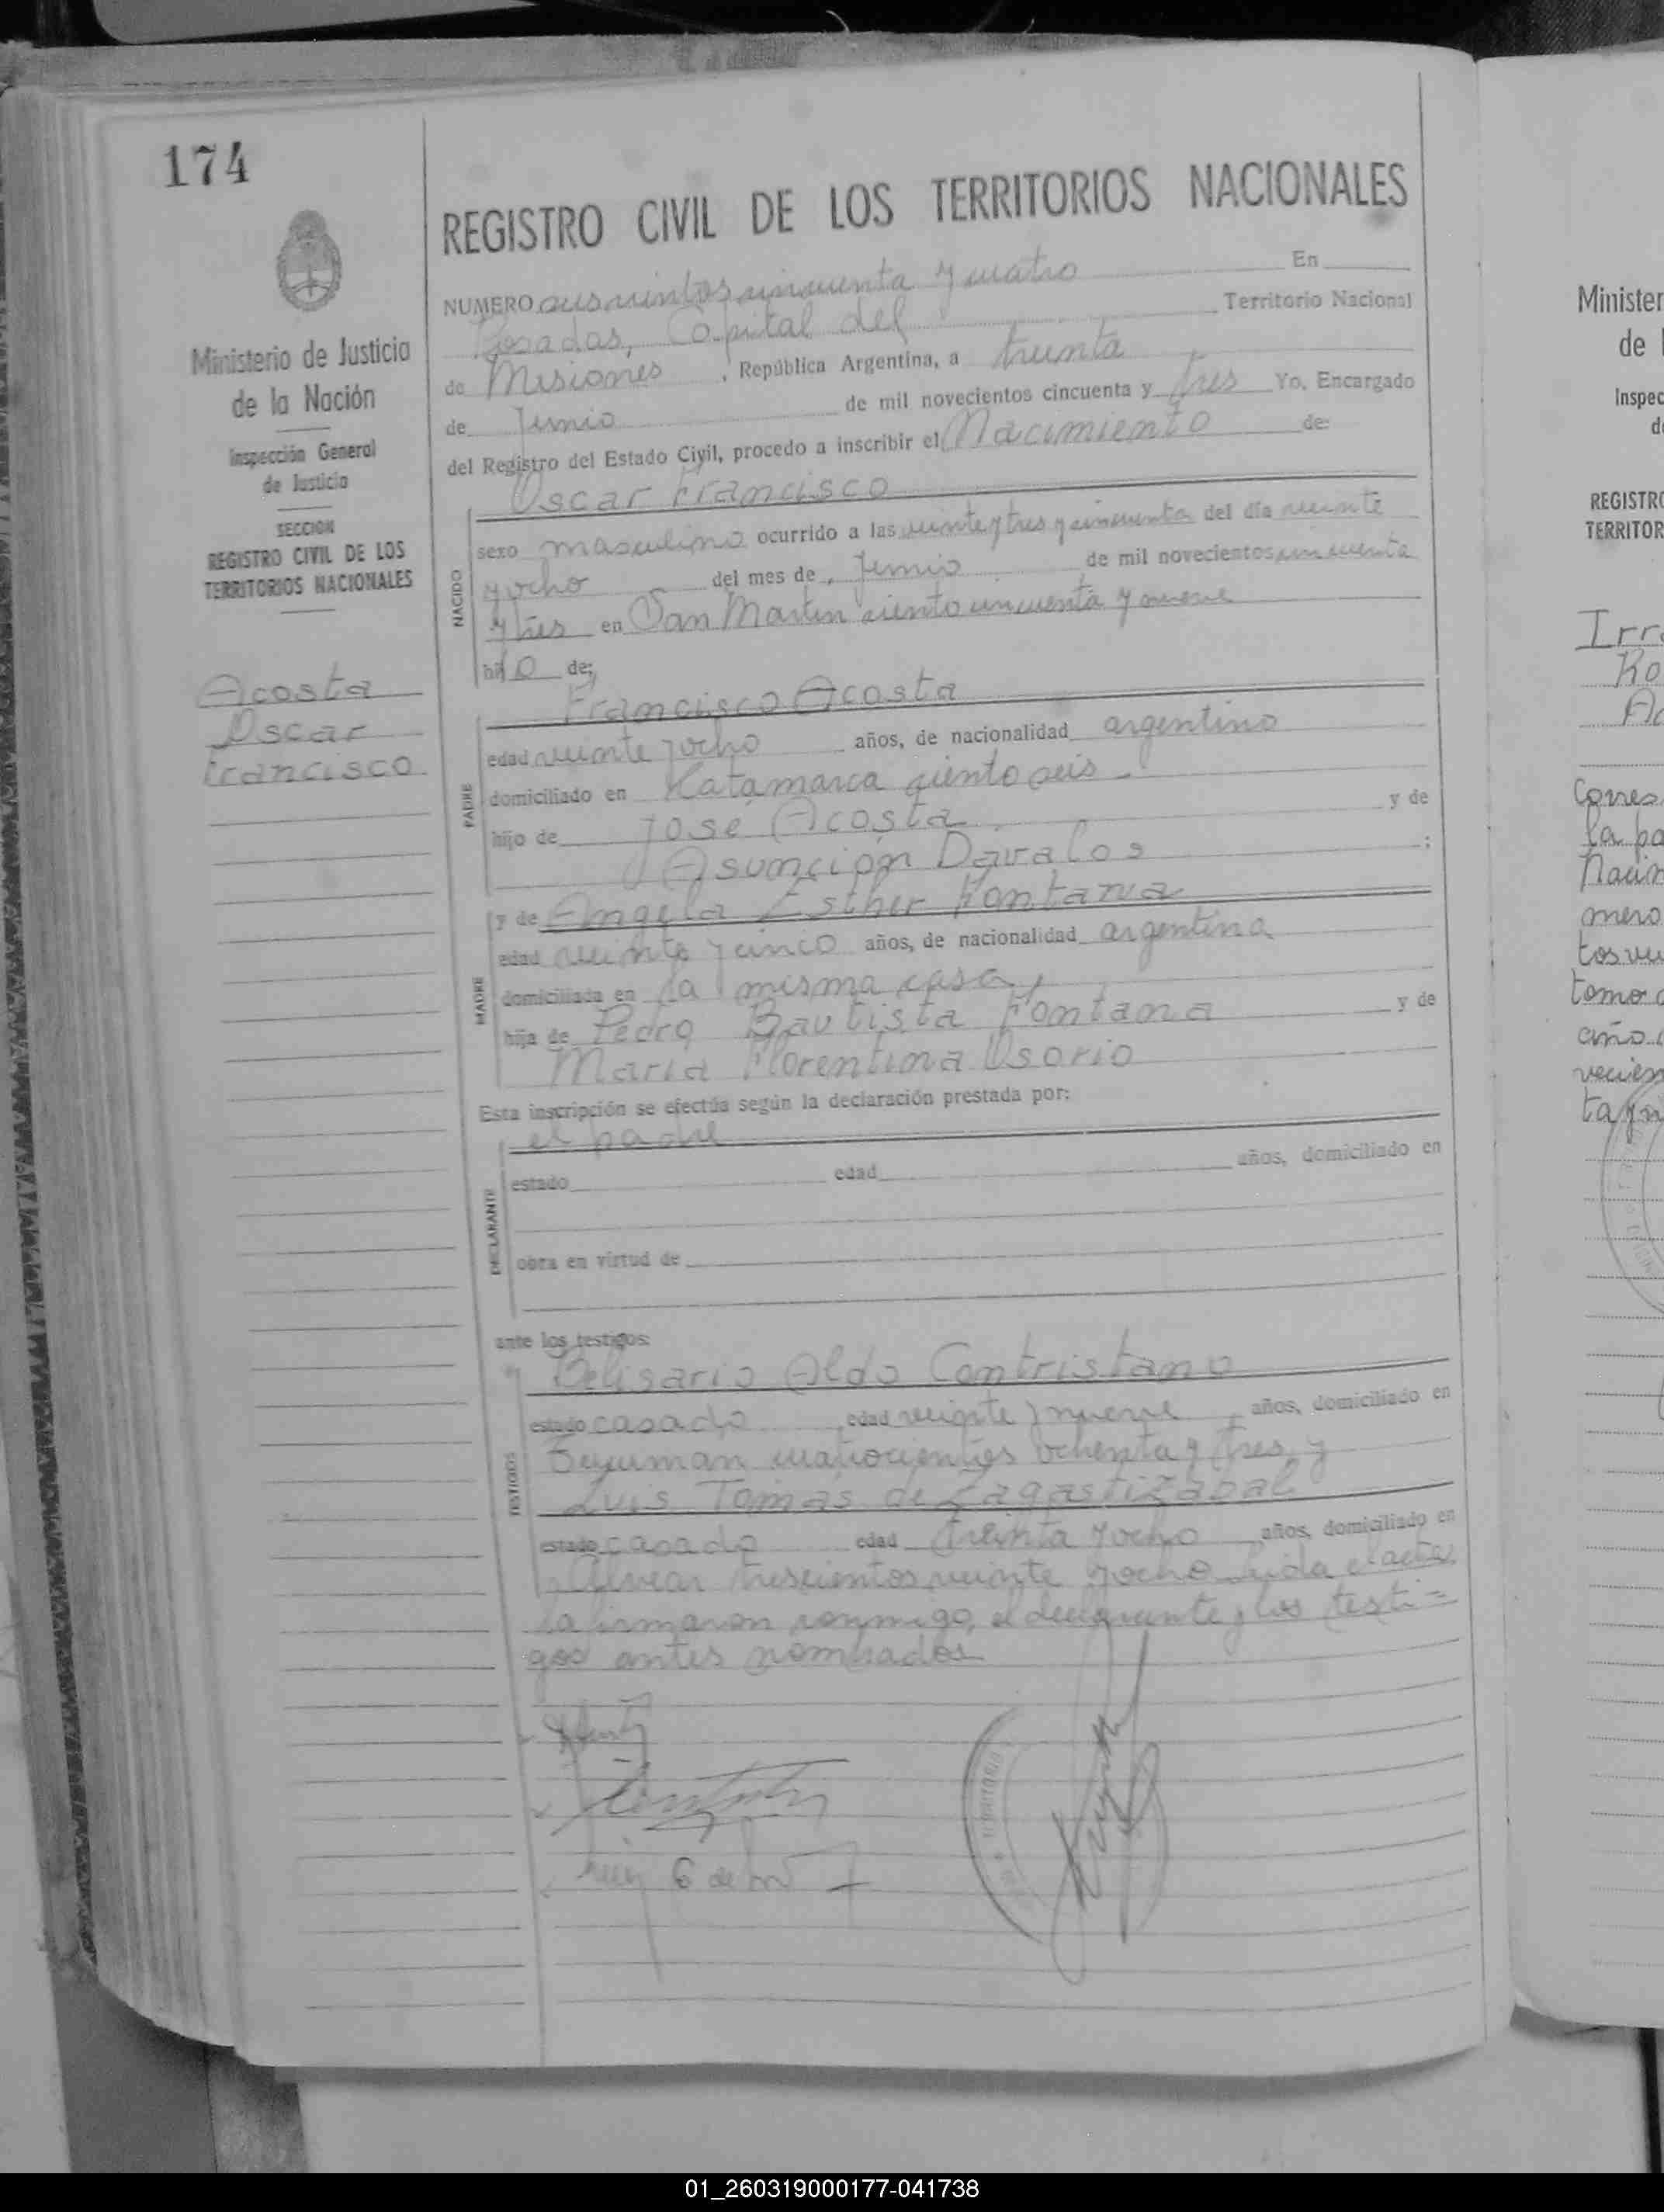 174
REGISTRO CIVIL DE LOS TERRITORIOS NACIONALES
Ministerio de Justicia
de la Nación
Inspección General
de Justicia
SECCION
REGISTRO CIVIL DE LOS
TERRITORIOS NACIONALES
Acosta
Oscar
Francisco
NUMERO seiscientos cincuenta y cuatro En
Posadas, Capital del Territorio Nacional
de Misiones, República Argentina, a treinta
de Junio de mil novecientos cincuenta y tres Yo, Encargado
del Registro del Estado Civil, procedo a inscribir el Nacimiento de:
NACIDO
Oscar Francisco
sexo masculino ocurrido a las veinte y tres y cincuenta del día veinte
y ocho del mes de Junio de mil novecientos cincuenta
y tres en San Martin ciento cincuenta y nueve
hijo de;
PADRE
Francisco Acosta
edad veinte y ocho años, de nacionalidad argentino
domiciliado en Katamarca ciento seis
hijo de José Acosta y de
Asunción Dávalos ;
MADRE
y de Angela Esther Fontana
edad veinte y cinco años, de nacionalidad argentina
domiciliada en la misma casa,
hija de Pedro Bautista Fontana y de
Maria Florentina Osorio
Esta inscripción se efectúa según la declaración prestada por:
DECLARANTE
el padre
estado edad años, domiciliado en
obra en virtud de
ante los testigos:
TESTIGOS
Belisario Aldo Contristano
estado casado edad veinte y nueve, años, domiciliado en
cuatrocientos ochenta y tres, y
Luis Tomás de Zagastizabal
estado casado edad treinta y ocho años, domiciliado en
Alvear trescientos veinte y ocho Leida el acta,
la firmaron conmigo, el declarante y los testi=
gos antes nombrados
Minister
de
Inspec
d
REGISTRO
TERRITOR
Irr
Ro
Ac
Corres
la pa
Nacim
mero
tos
tomo
año
vecien
01_260319000177-041738